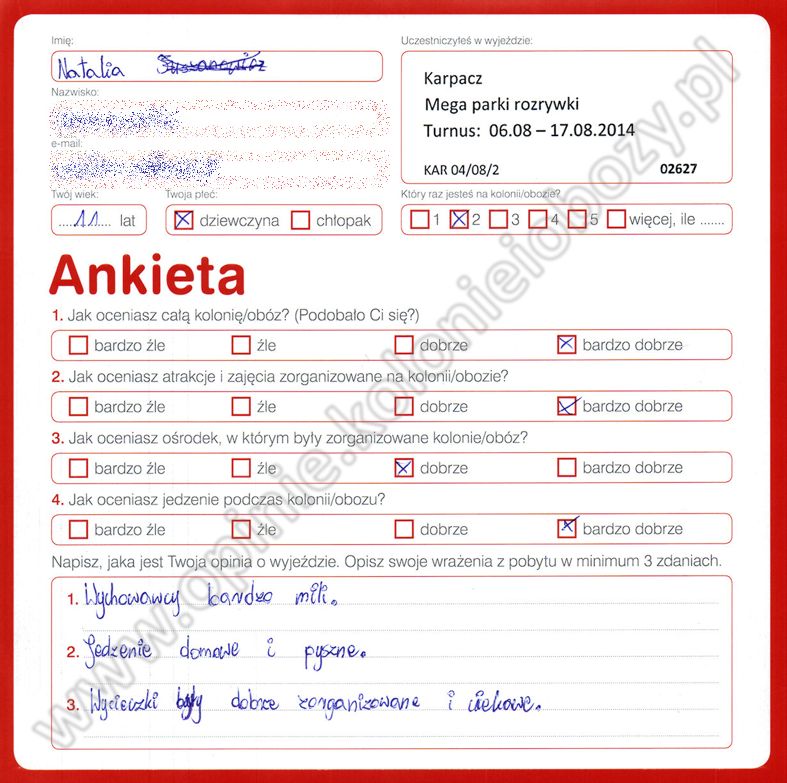 Imię:
Natalia
Uczestniczyłeś w wyjeździe:
Karpacz
Mega parki rozrywki
Turnus: 06.08 – 17.08.2014
KAR 04/08/2 02627
Nazwisko:
e-mail:
Twój wiek: Twoja płeć: Który raz jesteś na kolonii/obozie?
....11.... lat dziewczyna chłopak 1 2 3 4 5 więcej, ile .......
Ankieta
1. Jak oceniasz całą kolonię/obóz? (Podobało Ci się?)
bardzo źle źle dobrze bardzo dobrze
2. Jak oceniasz atrakcje i zajęcia zorganizowane na kolonii/obozie?
bardzo źle źle dobrze bardzo dobrze
3. Jak oceniasz ośrodek, w którym były zorganizowane kolonie/obóz?
bardzo źle źle dobrze bardzo dobrze
4. Jak oceniasz jedzenie podczas kolonii/obozu?
bardzo źle źle dobrze bardzo dobrze
Napisz, jaka jest Twoja opinia o wyjeździe. Opisz swoje wrażenia z pobytu w minimum 3 zdaniach.
1. Wychowawcy bardzo mili.
2. Jedzenie domowe i pyszne.
3. Wycieczki były dobrze zorganizowane i ciekowe.
www.opinie.kolonieiobozy.pl